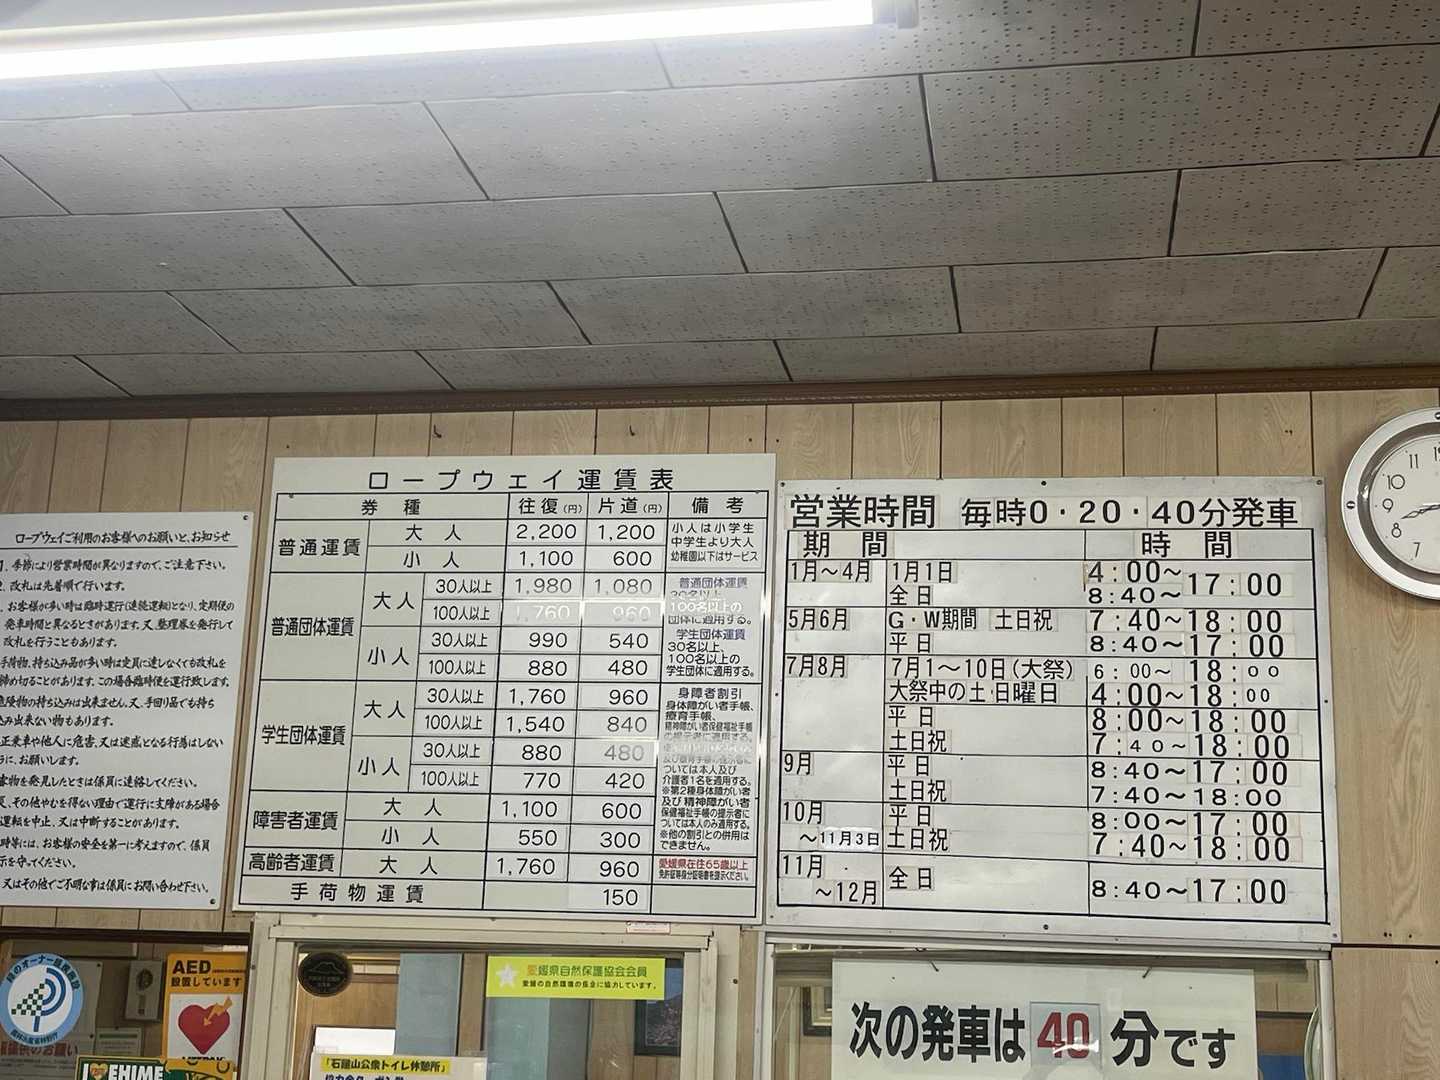 ロープウェイご利用のお客様へのお願いと、お知らせ
季節により営業時間が異なりますので、ご注意下さい。
改札は先着順で行います。
お客様が多い時は臨時運行(連続運転)となり、定期便の
発車時間と異なるときがあります。又、整理券を発行して
改札を行うこともあります。
手荷物、持ち込み品が多い時は定員に達しなくても改札を
締め切ることがあります。この場合臨時便を運行致します。
危険物の持ち込みは出来ません。又、手回り品でも持ち
込み出来ない物もあります。
乗車や他人に危害、又は迷惑となる行為はしない
お願いします。
を発見したときは係員に連絡してください。
その他やむを得ない理由で運行に支障がある場合
運転を中止、又は中断することがあります。
時等には、お客様の安全を第一に考えますので、係員
示を守ってください。
又はその他でご不明な事は係員にお問い合わせ下さい。
ロープウェイ運賃表
券種 往復(円) 片道(円) 備考
普通運賃 大人 2,200 1,200
小人 1,100 600
小人は小学生
中学生より大人
幼稚園以下はサービス
普通団体運賃 大人 30人以上 1,980 1,080
100人以上 1,760 960
小人 30人以上 990 540
100人以上 880 480
普通団体運賃
30名以上
100名以上の
団体に適用する。
学生団体運賃
30名以上、
100名以上の
学生団体に適用する。
学生団体運賃 大人 30人以上 1,760 960
100人以上 1,540 840
小人 30人以上 880 480
100人以上 770 420
障害者運賃 大人 1,100 600
小人 550 300
身障者割引
身体障がい者手帳、
療育手帳、
精神障がい者保健福祉手帳
の提示者に適用する。
及び療育手帳の提示者に
ついては本人及び
介護者1名を適用する。
※第2種身体障がい者
及び精神障がい者
保健福祉手帳の提示者に
ついては本人のみ適用する。
※他の割引との併用は
できません。
高齢者運賃 大人 1,760 960
愛媛県在住65歳以上
免許証等身分証明書を提示ください。
手荷物運賃 150
営業時間 毎時0・20・40分発車
期間 時間
1月～4月 1月1日 4:00～17:00
全日 8:40～
5月6月 G・W期間 土日祝 7:40～18:00
平日 8:40～17:00
7月8月 7月1～10日(大祭) 6:00～18:00
大祭中の土・日曜日 4:00～18:00
平日 8:00～18:00
土日祝 7:40～18:00
9月 平日 8:40～17:00
土日祝 7:40～18:00
10月 平日 8:00～17:00
～11月3日 土日祝 7:40～18:00
11月
～12月 全日 8:40～17:00
10 11 12
9
8
7
緑のオーナー
AED
設置しています
I EHIME
愛媛県自然保護協会会員
愛媛の自然環境の保全に協力しています。
「石鎚山公衆トイレ休憩所」
次の発車は40分です